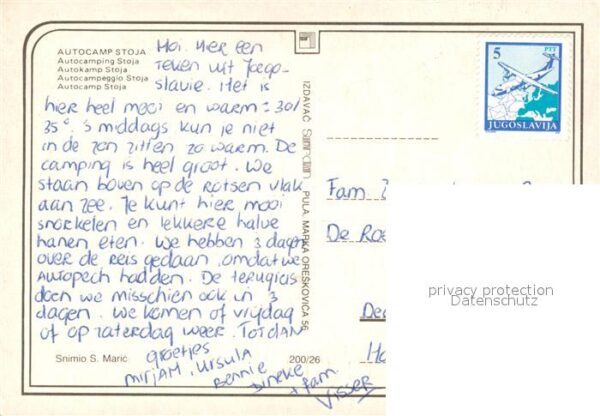 AUTOCAMP STOJA
Autocamping Stoja
Autokamp Stoja
Autocampeggio Stoja
Autocamp Stoja
Hoi. Hier een
teken uit Joego-
slavie. Het is
hier heel mooi en warm ± 30/
35°. 's middags kun je niet
in de zon zitten zo warm. De
camping is heel groot. We
staan boven op de rotsen vlak
aan zee. Je kunt hier mooi
snorkelen en lekkere halve
hanen eten. We hebben 3 dagen
over de reis gedaan, omdat we
autopech hadden. De terugreis
doen we misschien ook in 3
dagen. We komen of vrijdag
of op zaterdag weer. Tot dan
groetjes
Mirjam, Ursula
Bennie
Dineke
+ fam.
Visser
Snimio S. Marić
200/26
IZDAVAČ PULA, MARKA OREŠKOVIĆA 56
5
PTT
JUGOSLAVIJA
Fam
De
privacy protection
Datenschutz